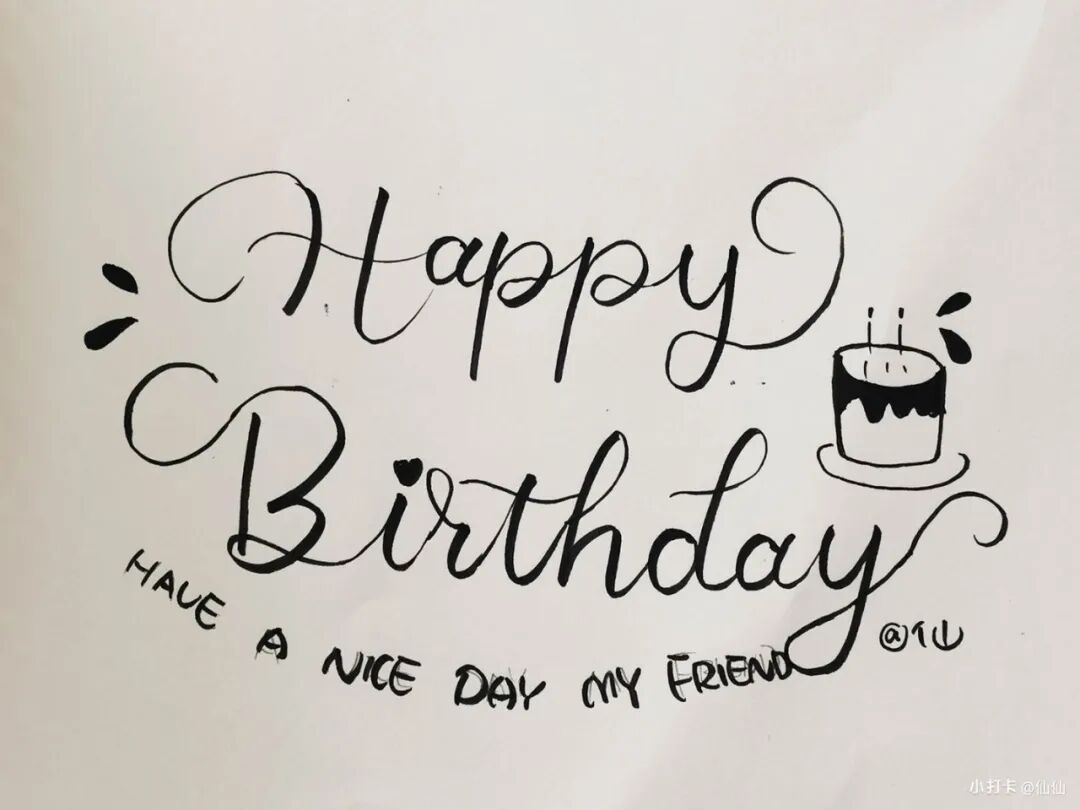 Happy
Birthday
HAVE A NICE DAY MY FRIEND
@仙
小打卡@仙仙